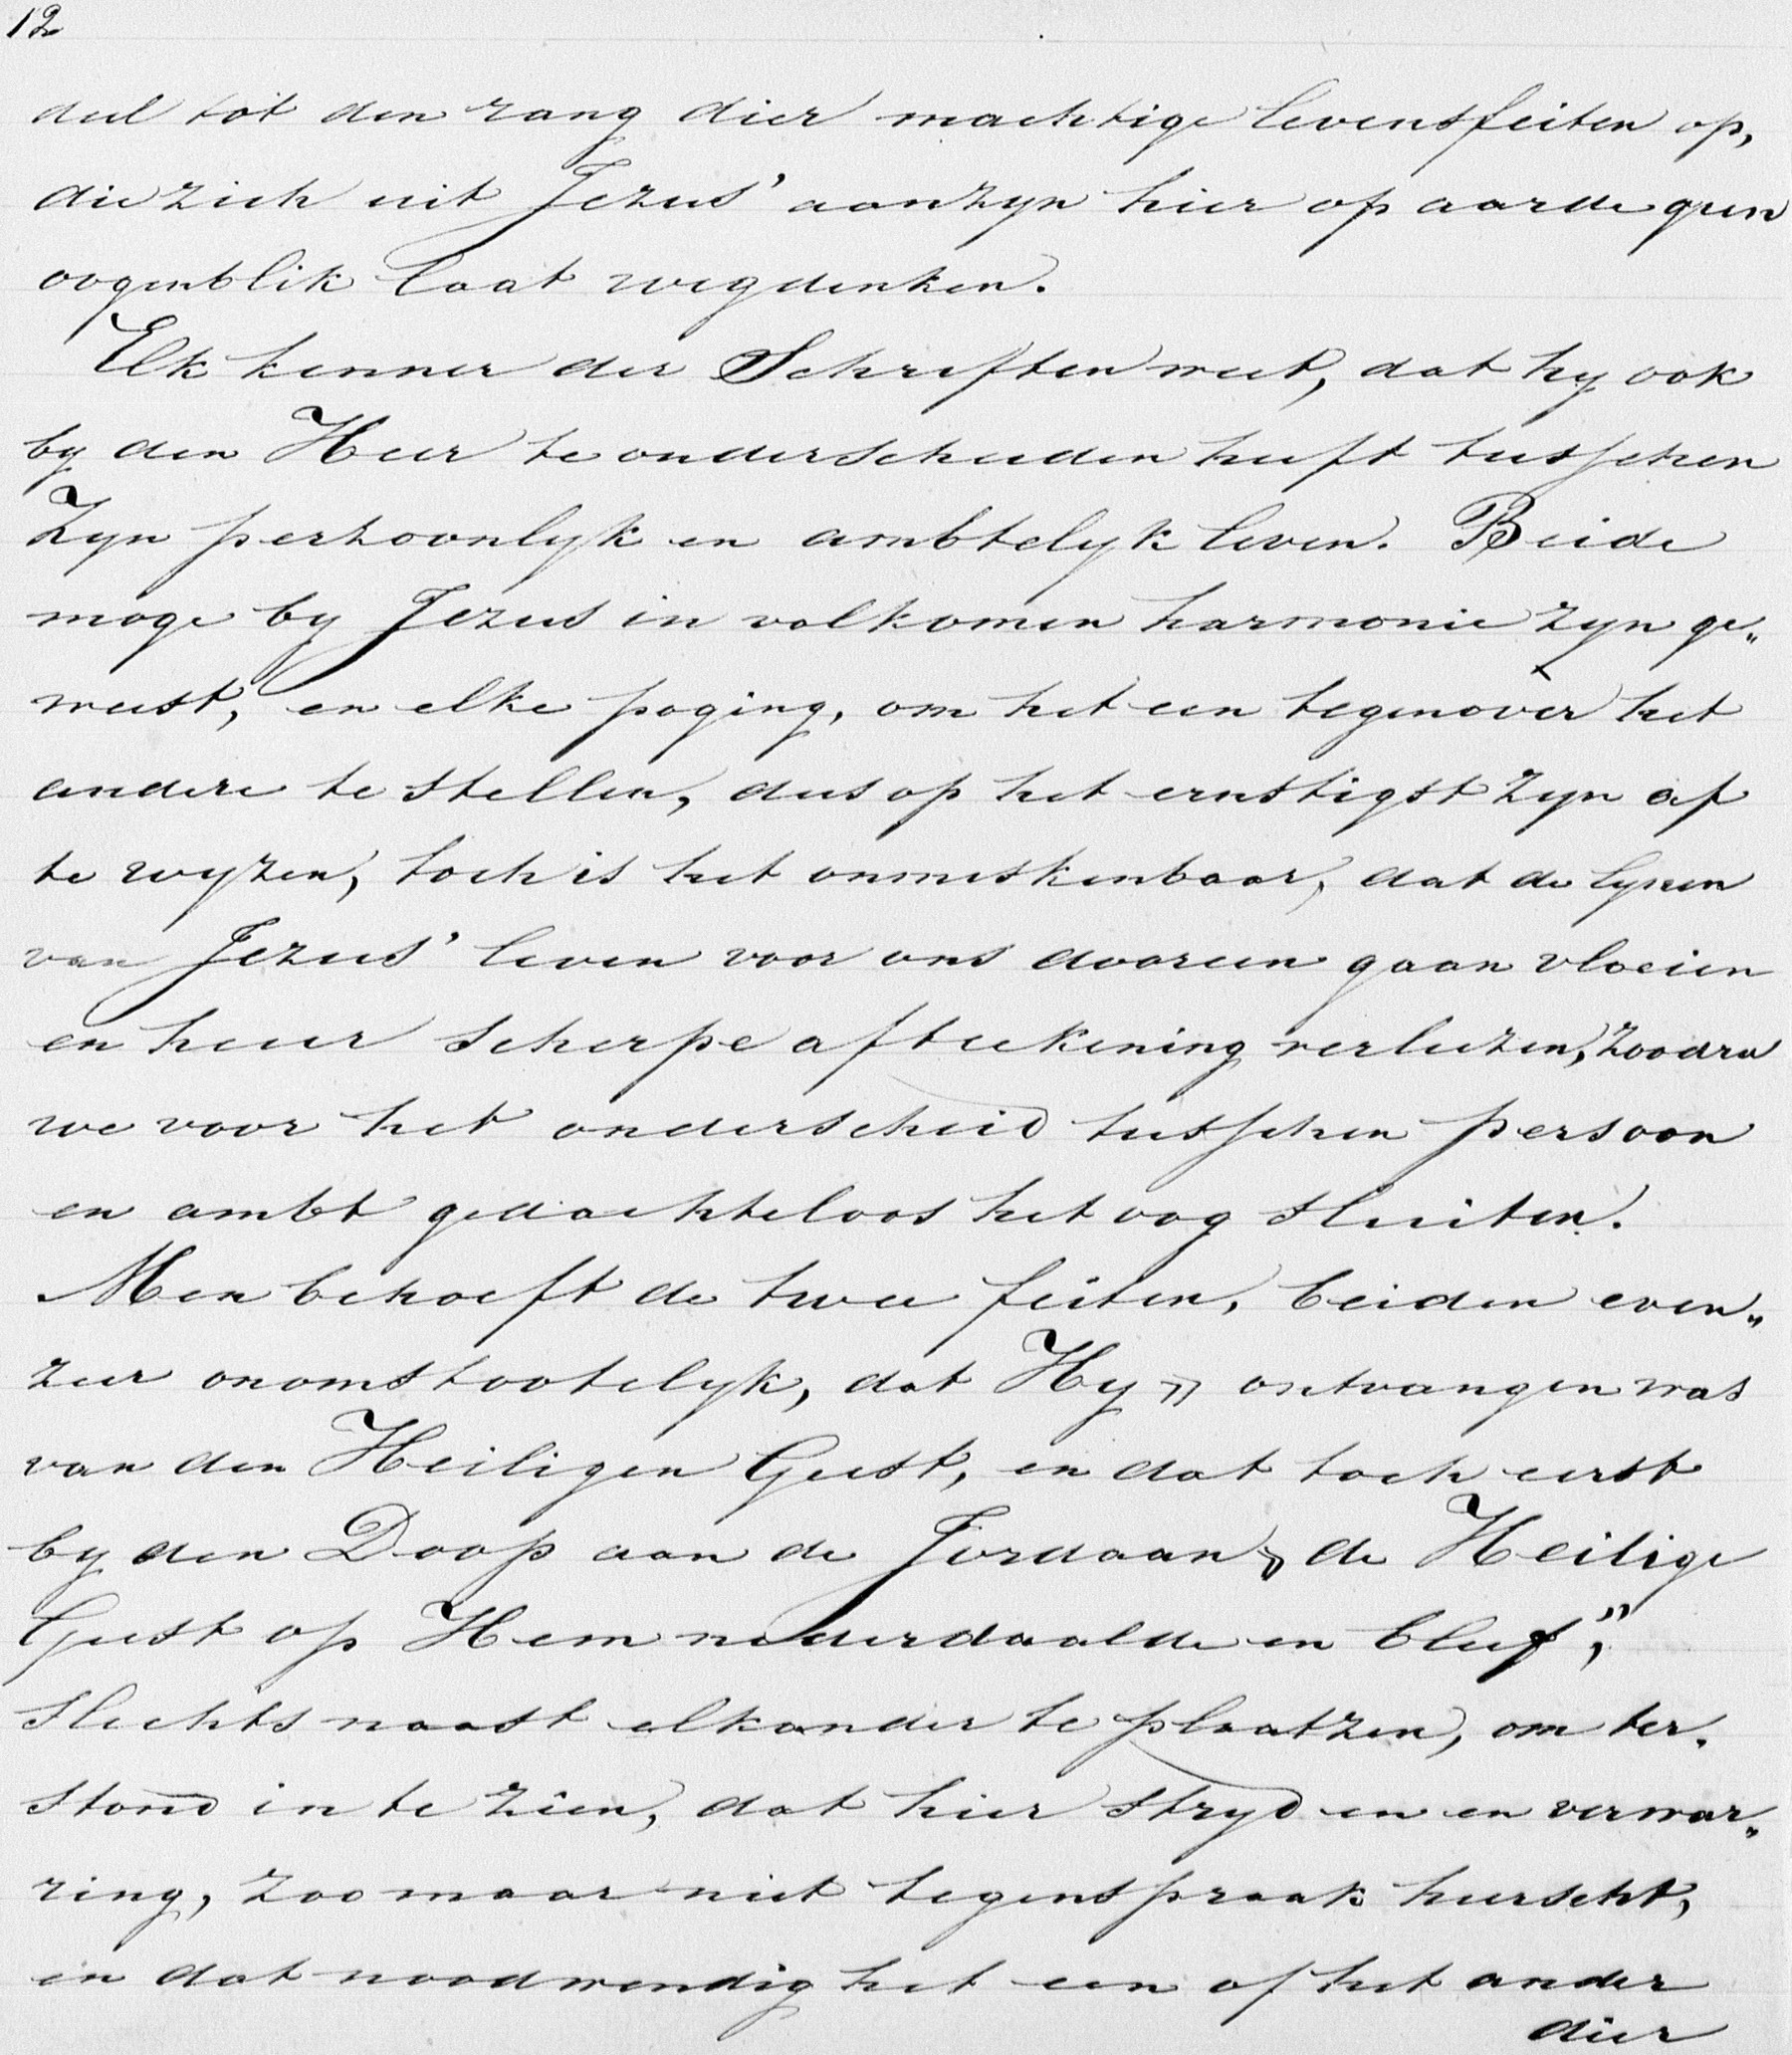 12
deel tot den rang dier machtige levensfeiten op,
die zich uit Jezus' aanzyn hier op aarde geen
oogenblik laat wegdenken.
Elk kenner der Schriften weet, dat hy ook
by den Heer te onderscheiden heeft tusschen
Zyn perzoonlyk en ambtelyk leven. Beide
moge by Jezus in volkomen harmonie zyn ge„
weest, en elke poging, om het een tegenover het
andere te stellen, dus op het ernstigst zyn af
te wyzen, toch is het onmiskenbaar, dat de lynen
van Jezus' leven voor ons dooreen gaan vloeien
en heur scherpe afteekening verliezen, zoodra
we voor het onderscheid tusschen persoon
en ambt gedachteloos het oog sluiten.
Men behoeft de twee feiten, beiden even„
zeer onomstootelyk, dat Hy „ ontvangen was
van den Heiligen Geest, en dat toch eerst
by den Doop aan de Jordaan „ de Heilige
Geest op Hem nederdaalde en bleef,"
slechts naast elkander te plaatzen, om ter.
stond in te zien, dat hier stryd en en verwar„
ring, zoo maar niet tegenspraak heerscht,
en dat noodwendig het een of het ander
dier